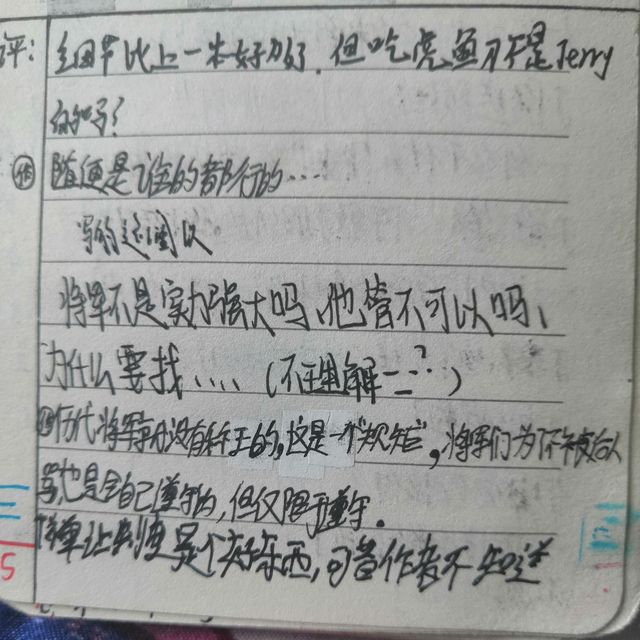 评: 细节比上一本好力好. 但吃虎鱼不是Jerry
的吗?
随便是谁的都行的....
写的还可以
将军不是实力强大吗、他皆不可以吗、
为什么要找.... (不理解一一?)
历代将军代没有称王的,这是一个"规定", 将军们为了不被后人
骂也是会自己遵守的, 但仅限于遵守.
简单让制度是个好东西,可昔作者不知道
5